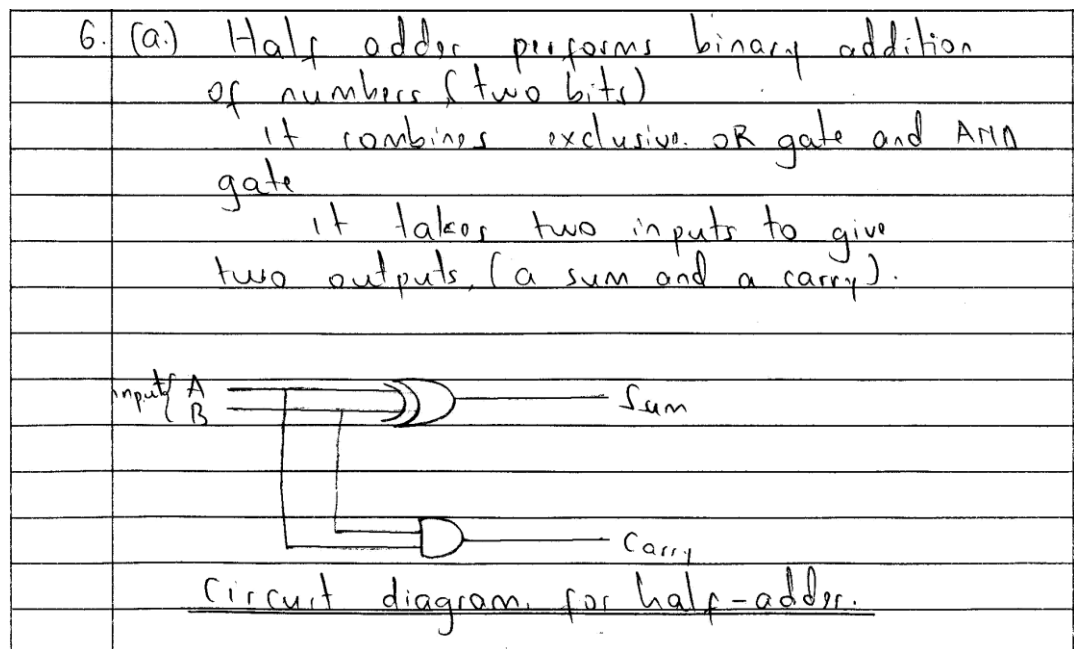 6. (a.) Half adder performs binary addition
of numbers (two bits)
it combines exclusive OR gate and AND
gate
it takes two inputs to give
two outputs, (a sum and a carry).
input { A
B
Sum
Carry
Circuit diagram for half-adder.